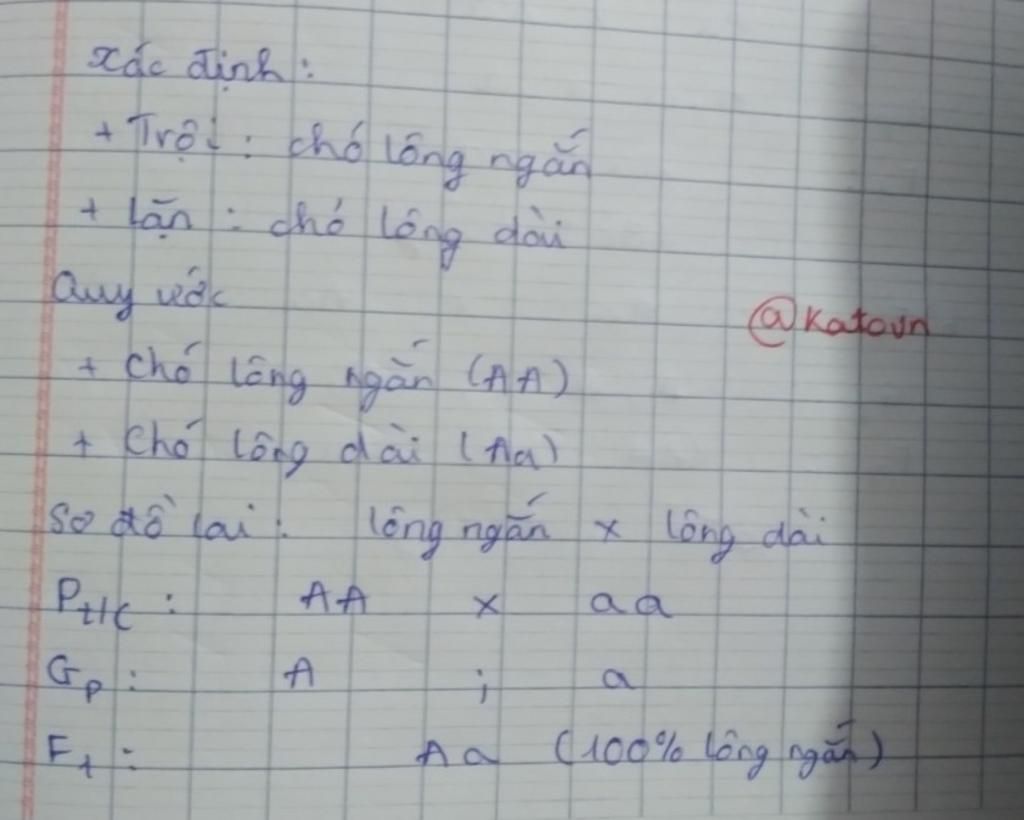 Xác định:
+ Trội: chó lông ngắn
+ lặn: chó lông dài
Quy ước
@Katovn
+ Chó lông ngắn (AA)
+ Chó lông dài (Aa)
Sơ đồ lai: lông ngắn x lông dài
Pt/c: AA x aa
Gp: A ; a
F1: Aa (100% lông ngắn)